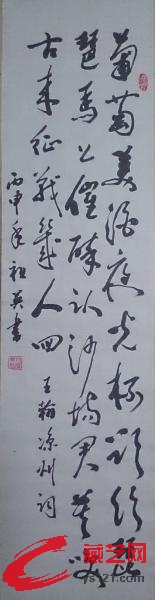 葡萄美酒夜光杯欲饮琵
琶马上催醉卧沙场君莫笑
古来征战几人回 王翰凉州词
丙申年祖英书